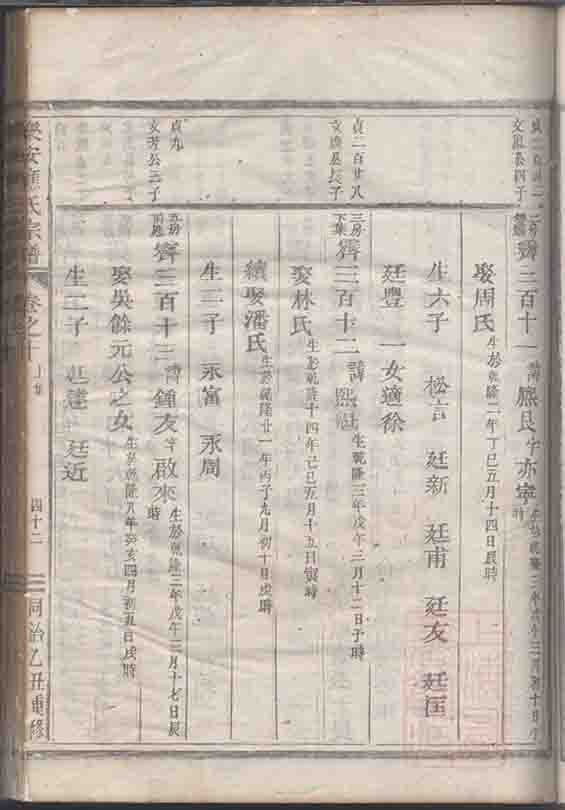 文 四子
三百十一 諱熊良字亦寧
娶周氏 生於乾隆二年丁巳五月十四日辰時
生六子 松言 廷新 廷甫 廷友 廷匡
廷豐 一女適徐
貞二百廿八
文 長子
三房下集 齊三百十二 諱熙 生乾隆三年戊午三月十二日子時
娶林氏 生於乾隆十四年己巳五月十五日寅時
續娶潘氏 生於乾隆廿一年丙子九月初十日戌時
生二子 永富 永周
貞九
文芳公三子
五房 齊三百十三 諱鍾友字啟來 生於乾隆三年戊午三月十七日辰時
娶吳餘元公之女 生於乾隆八年癸亥四月初五日戌時
生二子 廷達 廷近
樂安 氏宗譜
卷之十 上集
四十二
同治乙丑重修